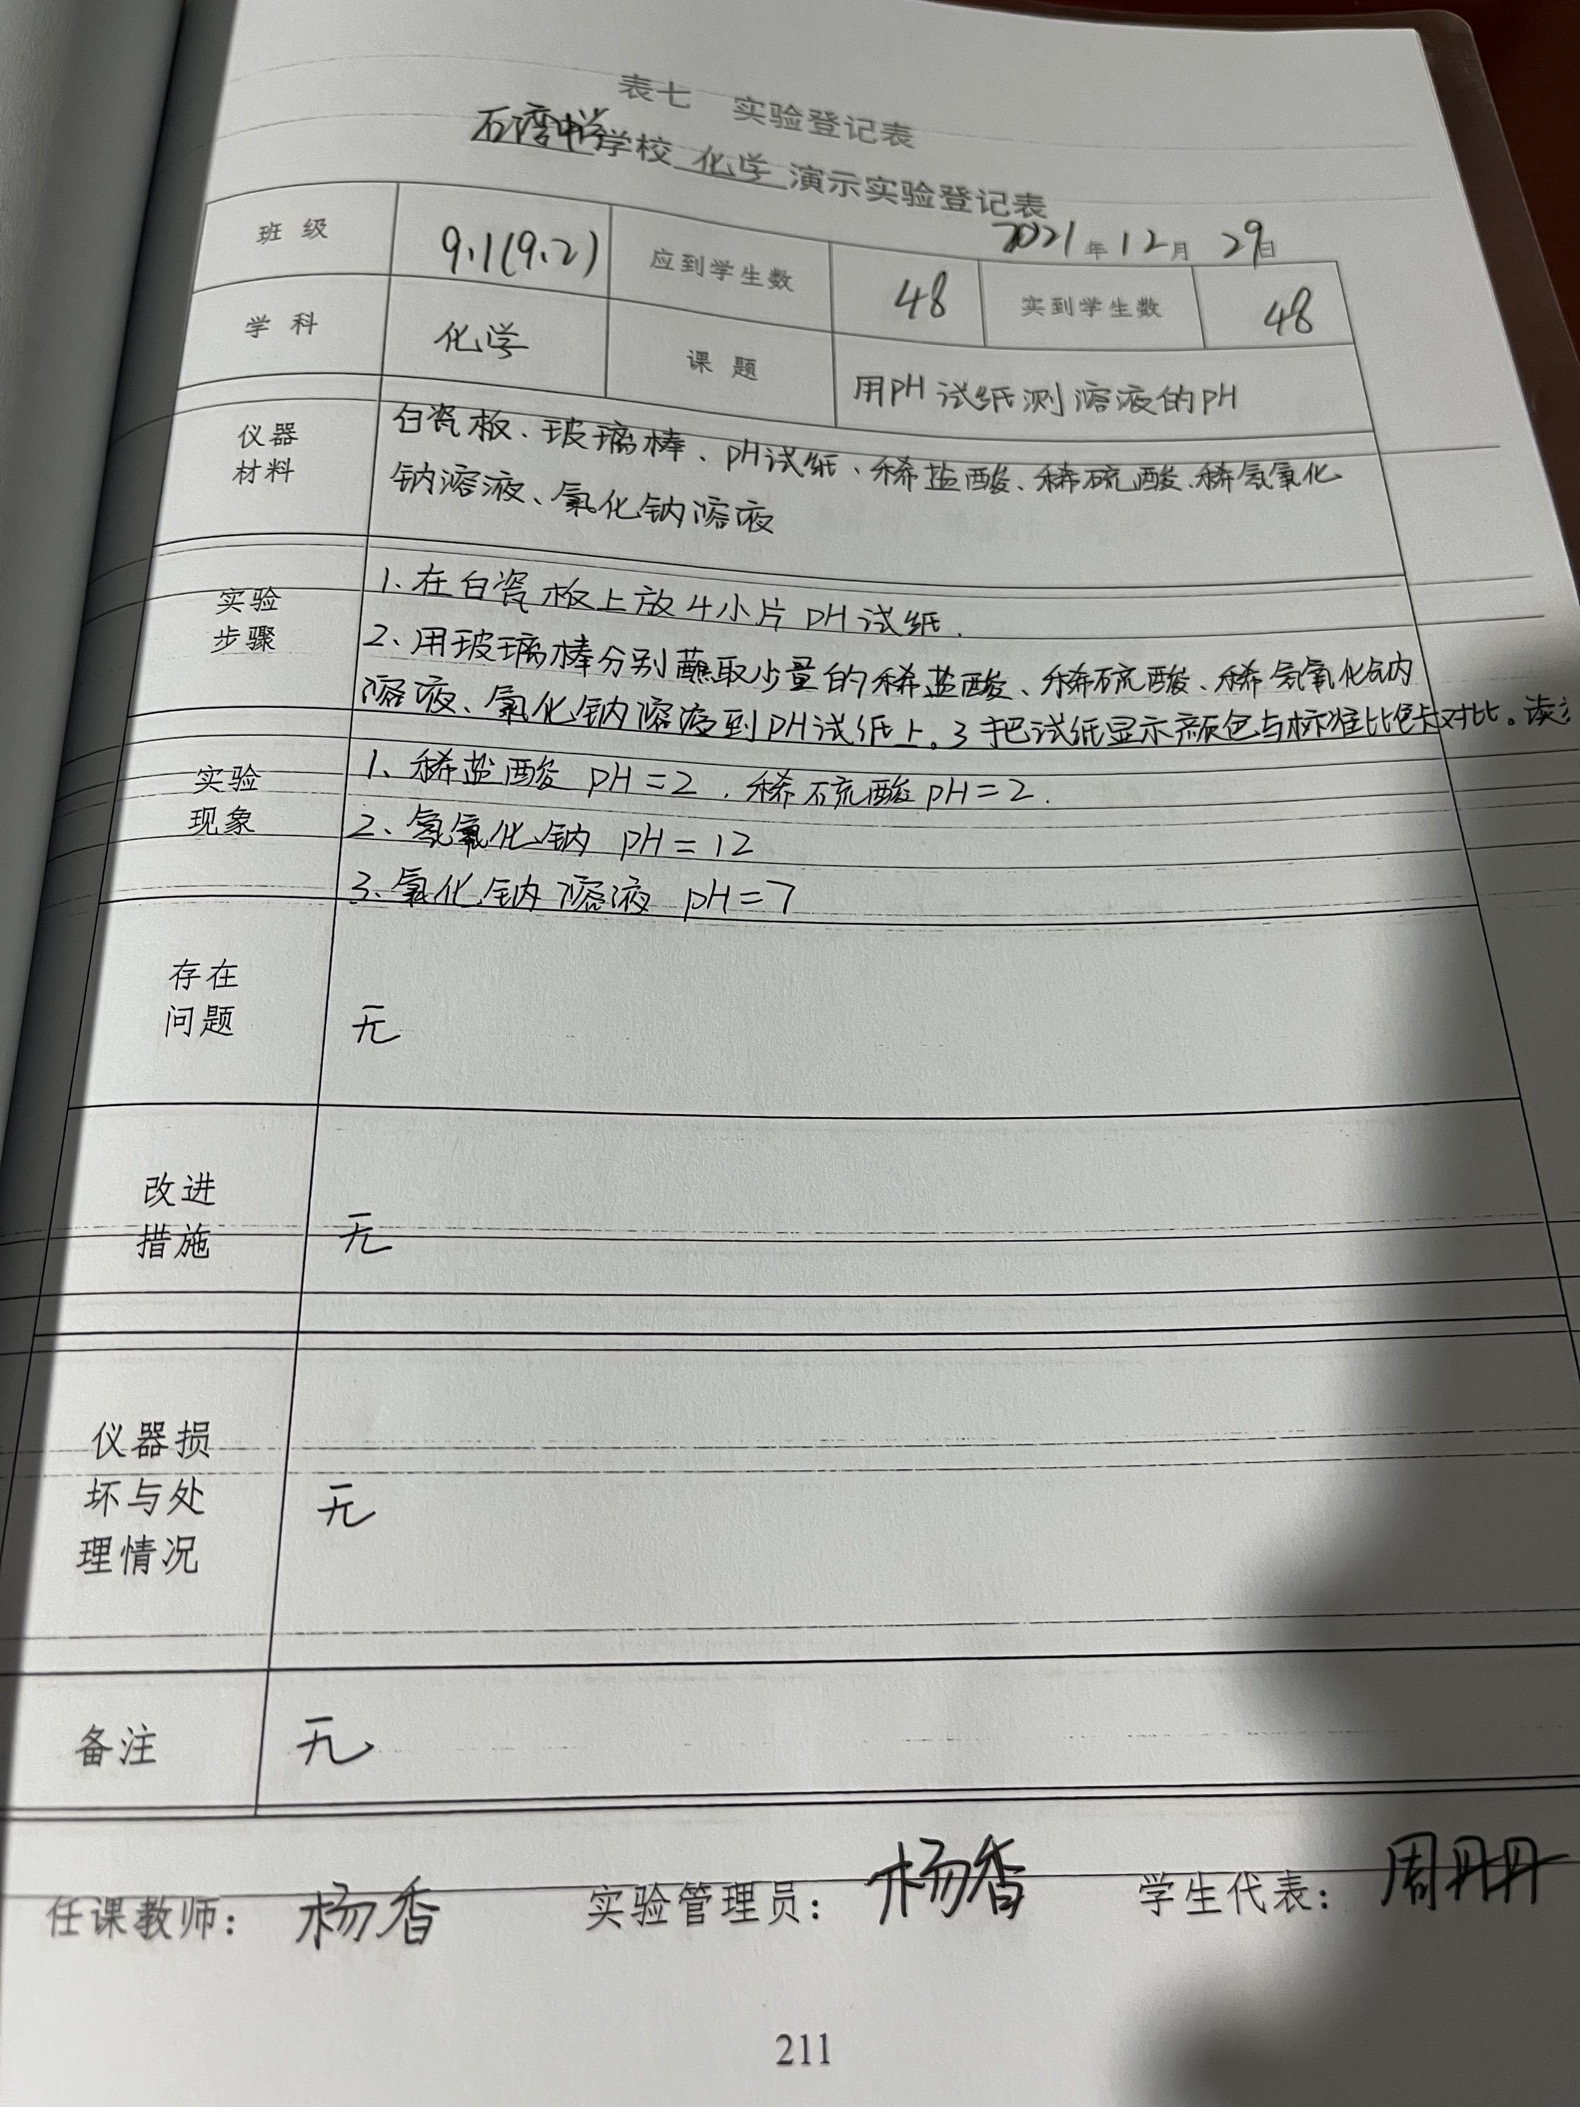 表七 实验登记表
石湾中学学校 化学 演示实验登记表
2021年12月29日
班级 9.1(9.2) 应到学生数 48 实到学生数 48
学科 化学 课题 用PH试纸测溶液的PH
仪器
材料
白瓷板、玻璃棒、PH试纸、稀盐酸、稀硫酸、稀氢氧化
钠溶液、氯化钠溶液
实验
步骤
1.在白瓷板上放4小片PH试纸.
2、用玻璃棒分别蘸取少量的稀盐酸、稀硫酸、稀氢氧化钠
溶液、氯化钠溶液到PH试纸上。3把试纸显示颜色与标准比色卡对比。读
实验
现象
1、稀盐酸 PH=2 、稀硫酸PH=2.
2、氢氧化钠 PH=12
3、氯化钠溶液 PH=7
存在
问题
无
改进
措施
无
仪器损
坏与处
理情况
无
备注 无
任课教师: 杨香 实验管理员: 杨香 学生代表: 周丹丹
211